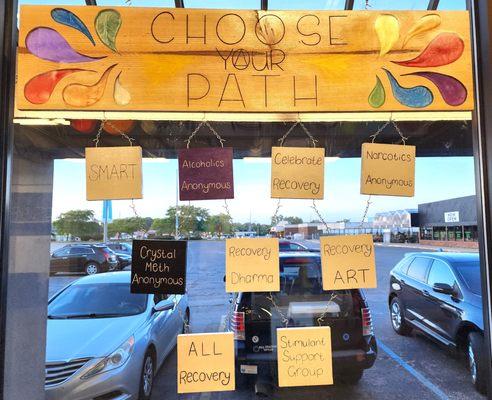 CHOOSE
YOUR
PATH
SMART
Alcoholics
Anonymous
Celebrate
Recovery
Narcotics
Anonymous
Crystal
Meth
Anonymous
Recovery
Dharma
Recovery
ART
ALL
Recovery
Stimulant
Support
Group
NOW
OPEN